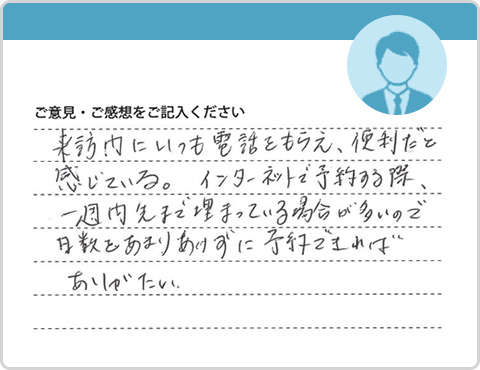 ご意見・ご感想をご記入ください
来訪内にいつも電話をもらえ、便利だと
感じている。 インターネットで予約する際、
一週内先まで埋まっている場合が多いので
日数をあまりあけずに予約できれば
ありがたい.